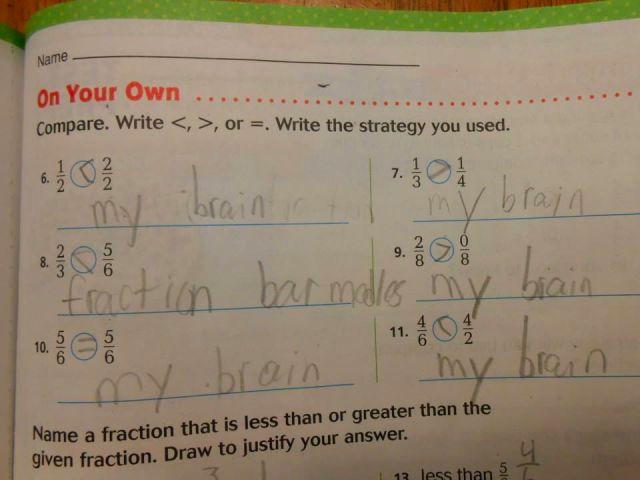 Name
On Your Own
Compare. Write <, >, or =. Write the strategy you used.
6. 1/2 < 2/2 7. 1/3 > 1/4
my brain my brain
8. 2/3 < 5/6 9. 2/8 > 0/8
fraction bar modles my brain
10. 5/6 = 5/6 11. 4/6 < 4/2
my brain my brain
Name a fraction that is less than or greater than the
given fraction. Draw to justify your answer.
13. less than 5 4